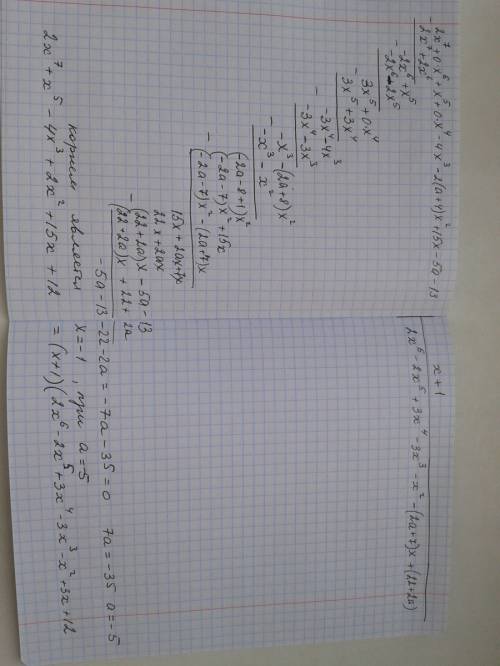 2x⁷+0·x⁶+x⁵+0·x⁴-4x³-2(a+4)x²+15x-5a-13 | x+1
2x⁷+2x⁶
2x⁶-2x⁵+3x⁴-3x³-x²-(2a+7)x+(22+2a)
-2x⁶+x⁵
-2x⁶-2x⁵
3x⁵+0·x⁴
3x⁵+3x⁴
-3x⁴-4x³
-3x⁴-3x³
-x³-(2a+8)x²
-x³-x²
(-2a-8+1)x²
(-2a-7)x²+15x
(-2a-7)x²-(2a+7)x
15x+2ax+7x
22x+2ax
(22+2a)x-5a-13
(22+2a)x+22+2a
-5a-13-22-2a=-7a-35=0 7a=-35 a=-5
корнем является x=-1, при a=-5
2x⁷+x⁵-4x³+2x²+15x+12=(x+1)(2x⁶-2x⁵+3x⁴-3x³-x²+3x+12